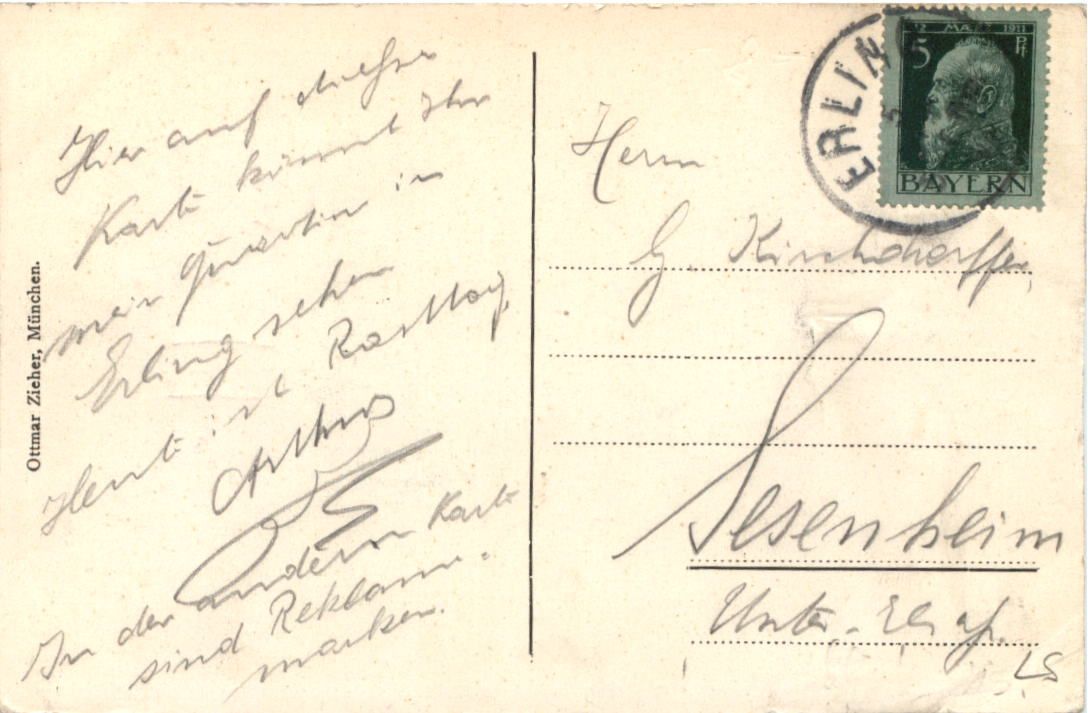 Hier auf dieser
Karte könnt Ihr
mein Quartier in
Erling sehen
Heute ist Rasttag.
Arthur
In der andern Karte
sind Reklame-
marken.
Ottmar Zieher, München.
ERLIN
5
12 MARZ 1911
5 Pf
BAYERN
Herrn
G. Kirchdörffer,
Sesenheim
Unter-Elsaß.
LS